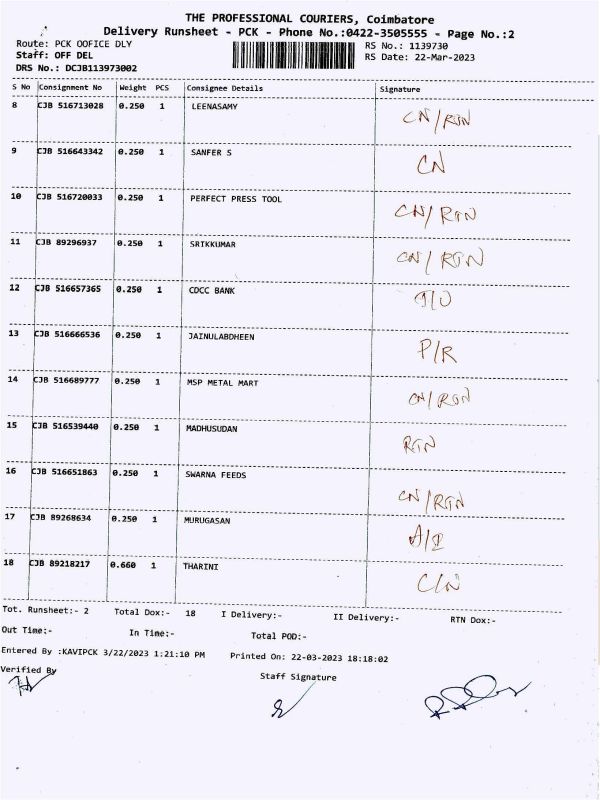 THE PROFESSIONAL COURIERS, Coimbatore
Delivery Runsheet - PCK - Phone No.:0422-3505555 - Page No.:2
Route: PCK OOFICE DLY
RS No.: 1139730
Staff: OFF DEL
RS Date: 22-Mar-2023
DRS No.: DCJB113973002
S No Consignment No Weight PCS Consignee Details Signature
8 CJB 516713028 0.250 1 LEENASAMY CN/RTN
9 CJB 516643342 0.250 1 SANFER S CN
10 CJB 516720033 0.250 1 PERFECT PRESS TOOL CN/RTN
11 CJB 89296937 0.250 1 SRIKKUMAR CN/RTN
12 CJB 516657365 0.250 1 CDCC BANK
13 CJB 516666536 0.250 1 JAINULABDHEEN P/R
14 CJB 516689777 0.250 1 MSP METAL MART CN/RTN
15 CJB 516539440 0.250 1 MADHUSUDAN RTN
16 CJB 516651863 0.250 1 SWARNA FEEDS CN/RTN
17 CJB 89268634 0.250 1 MURUGASAN
18 CJB 89218217 0.660 1 THARINI C/N
Tot. Runsheet:- 2 Total Dox:- 18 I Delivery:- II Delivery:- RTN Dox:-
Out Time:- In Time:- Total POD:-
Entered By :KAVIPCK 3/22/2023 1:21:10 PM Printed On: 22-03-2023 18:18:02
Verified By
Staff Signature